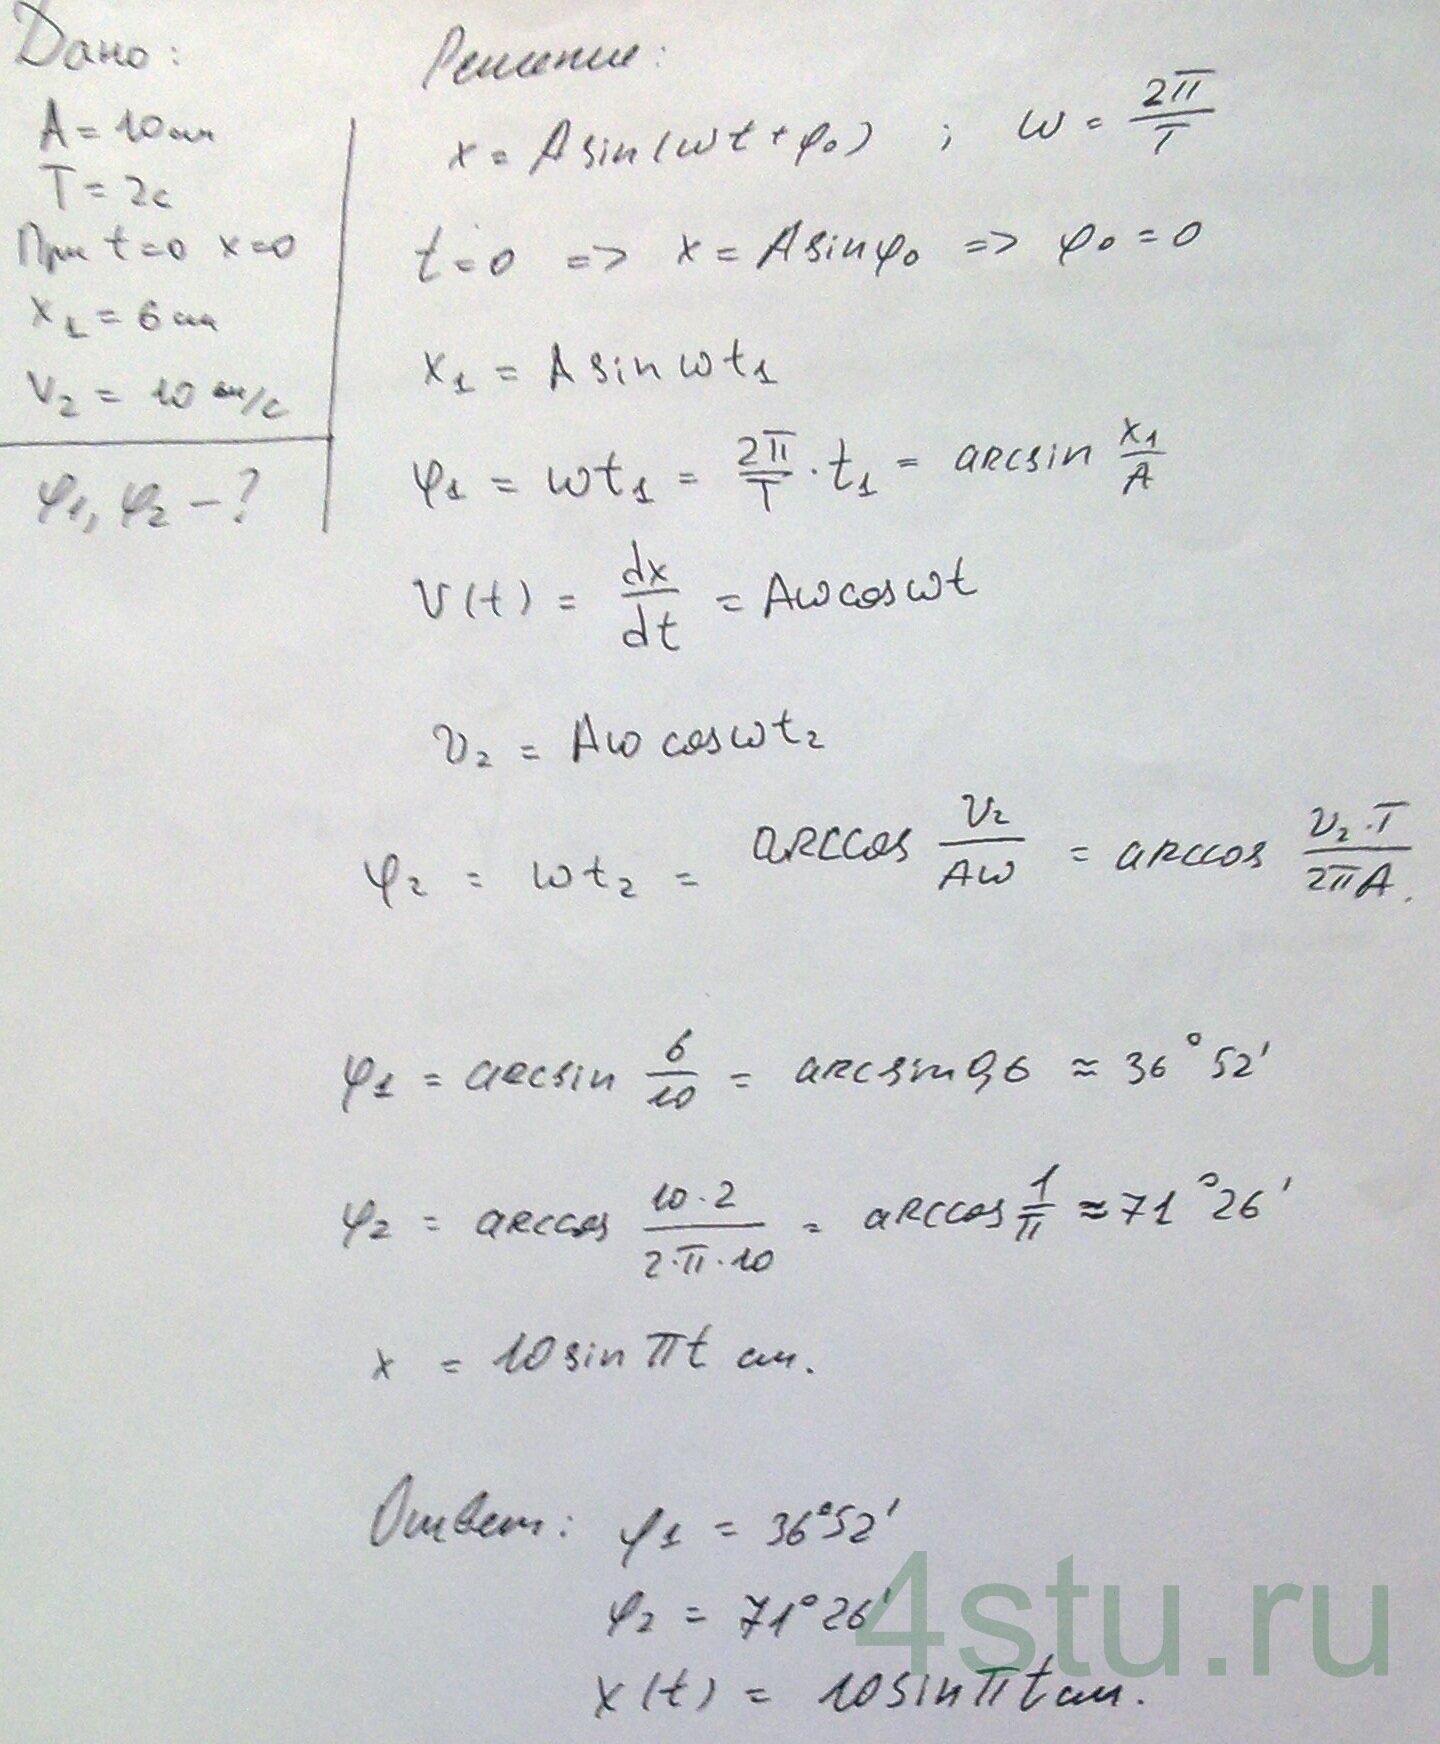 Дано:
A = 10 см
T = 2с
При t=0 x=0
x₁ = 6 см
v₂ = 10 см/с
φ₁, φ₂ – ?
Решение:
x = A sin(ωt + φ₀) ; ω = 2π/T
t=0 => x = A sin φ₀ => φ₀ = 0
x₁ = A sin ωt₁
φ₁ = ωt₁ = 2π/T · t₁ = arcsin x₁/A
v(t) = dx/dt = Aω cos ωt
v₂ = Aω cos ωt₂
φ₂ = ωt₂ = arccos v₂/Aω = arccos v₂·T/2πA.
φ₁ = arcsin 6/10 = arcsin 0,6 ≈ 36°52'
φ₂ = arccos 10·2/2·π·10 = arccos 1/π ≈ 71°26'
x = 10 sin πt см.
Ответ: φ₁ = 36°52'
φ₂ = 71°26'
x(t) = 10 sin πt см.
4stu.ru